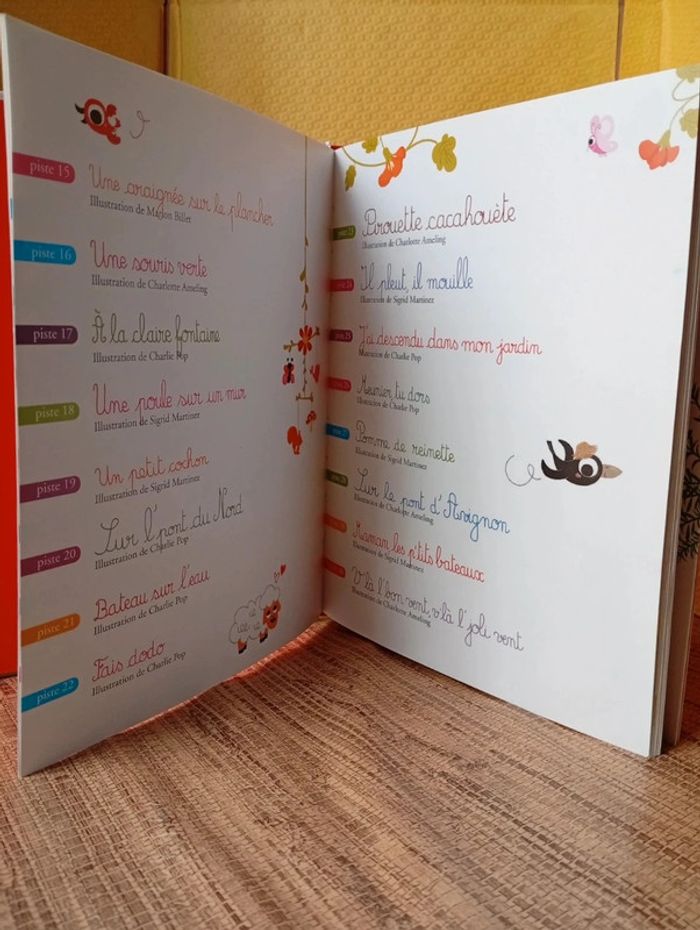 piste 15
Une araignée sur le plancher
Illustration de Marion Billet
piste 16
Une souris verte
Illustration de Charlotte Ameling
piste 17
À la claire fontaine
Illustration de Charlie Pop
piste 18
Une poule sur un mur
Illustration de Sigrid Martinez
piste 19
Un petit cochon
Illustration de Sigrid Martinez
piste 20
Sur l'pont du Nord
Illustration de Charlie Pop
piste 21
Bateau sur l'eau
Illustration de Charlie Pop
piste 22
Fais dodo
Illustration de Charlie Pop
piste 23
Pirouette cacahouète
Illustration de Charlotte Ameling
piste 24
Il pleut, il mouille
Illustration de Sigrid Martinez
piste 25
J'ai descendu dans mon jardin
Illustration de Charlie Pop
piste 26
Meunier, tu dors
Illustration de Charlie Pop
piste 27
Pomme de reinette
Illustration de Sigrid Martinez
piste 28
Sur le pont d'Avignon
Illustration de Charlotte Ameling
Maman les p'tits bateaux
Illustration de Sigrid Martinez
V'là l'bon vent, v'là l'joli vent
Illustration de Charlotte Ameling